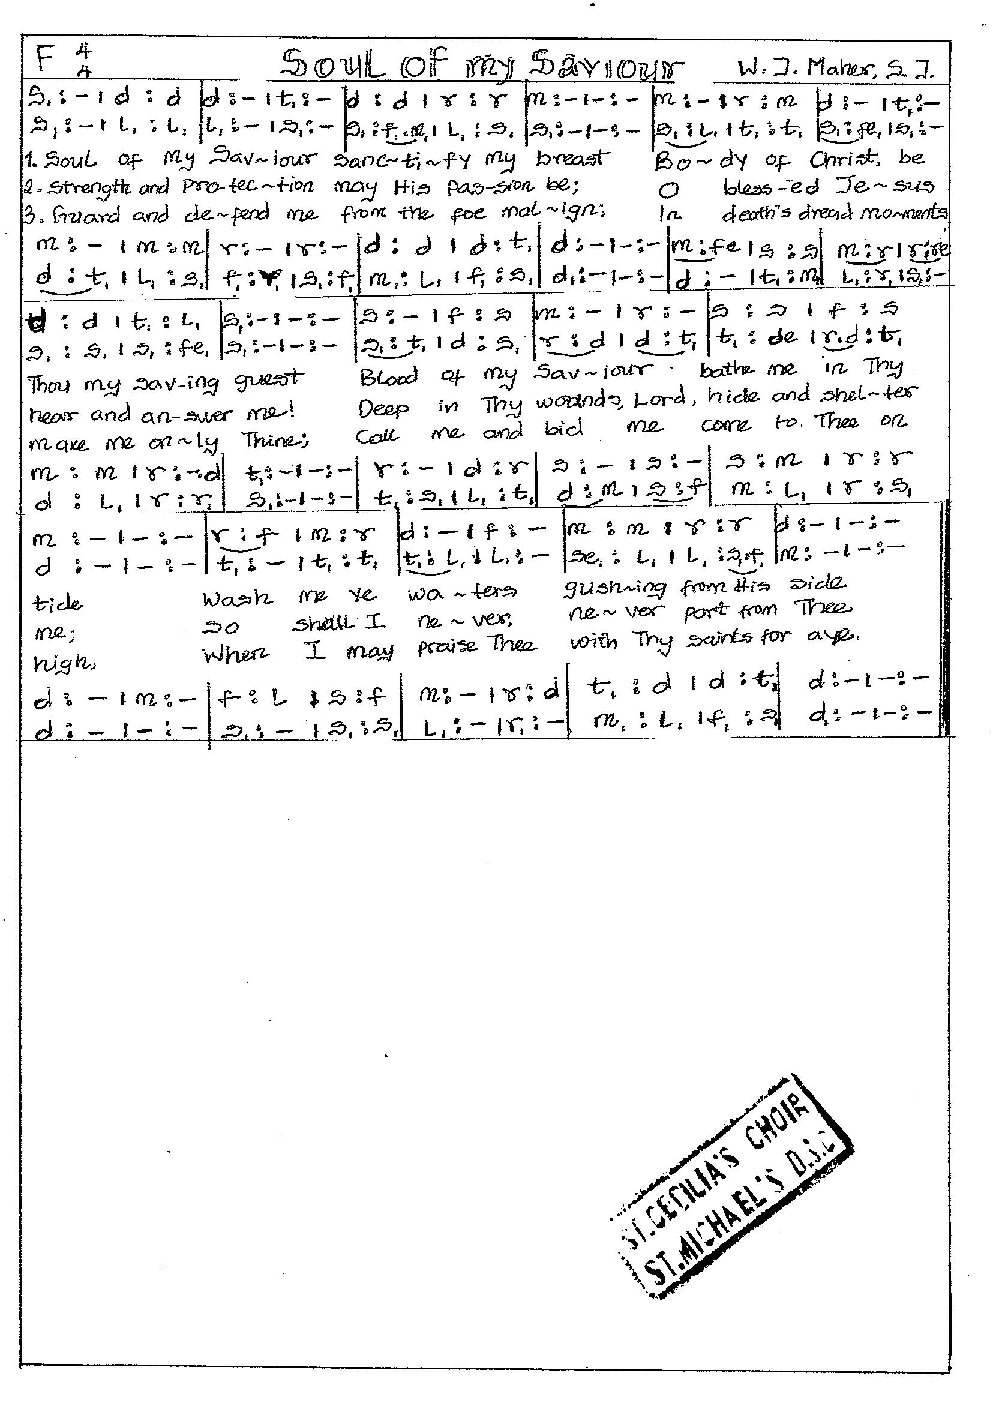 F 4/4 Soul of my Saviour W. J. Maher, S. J.
s, : - | d : d | d : - | t, : - | d : d | r : r | m : - | - : - | m : - | r : m | d : - | t, : -
s, : - | l, : l, | l, : - | s, : - | s, : f, . m, | l, : s, | s, : - | - : - | s, : l, | t, : t, | s, : fe, | s, : -
1. Soul of my Sav~iour sanc~ti~fy my breast Bo~dy of Christ, be
2. Strength and Pro-tec~tion may His pas-sion be; O bless-ed Je~sus
3. Guard and de~fend me from the foe mal~ign; In death's dread moments
m : - | m : m | r : - | r : - | d : d | d : t, | d : - | - : - | m : fe | s : s | m : r | r : re
d : t, | l, : s, | f, : | s, : f, | m, : l, | f, : s, | d, : - | - : - | d : - | t, : m | l, : r, | s, : -
d : d | t, : l, | s, : - | - : - | s : - | f : s | m : - | r : - | s : s | f : s
s, : s, | s, : fe, | s, : - | - : - | s, : t, | d : s, | r : d | d : t, | t, : de | r . d : t,
Thou my sav-ing guest Blood of my Sav~iour bathe me in Thy
hear and an-swer me! Deep in Thy wounds, Lord, hide and shel~ter
make me on~ly Thine; Call me and bid me come to Thee on
m : m | r : - . d | t, : - | - : - | r : - | d : r | s : - | s : - | s : m | r : r
d : l, | r : r, | s, : - | - : - | t, : s, | l, : t, | d : m | s : f | m : l, | r : s,
m : - | - : - | r : f | m : r | d : - | f : - | m : m | r : r | d : - | - : -
d : - | - : - | t, : - | t, : t, | t, : l, | l, : - | se, : l, | l, : s, . f, | m, : - | - : -
tide Wash me ye wa~ters gush~ing from His side
me; so shall I ne~ver, ne~ver part from Thee
high, When I may praise Thee with Thy saints for aye.
d : - | m : - | f : l | s : f | m : - | r : d | t, : d | d : t, | d : - | - : -
d : - | - : - | s, : - | s, : s, | l, : - | r, : - | m, : l, | f, : s, | d, : - | - : -
ST. CECILIA'S CHOIR
ST. MICHAEL'S D.S.C